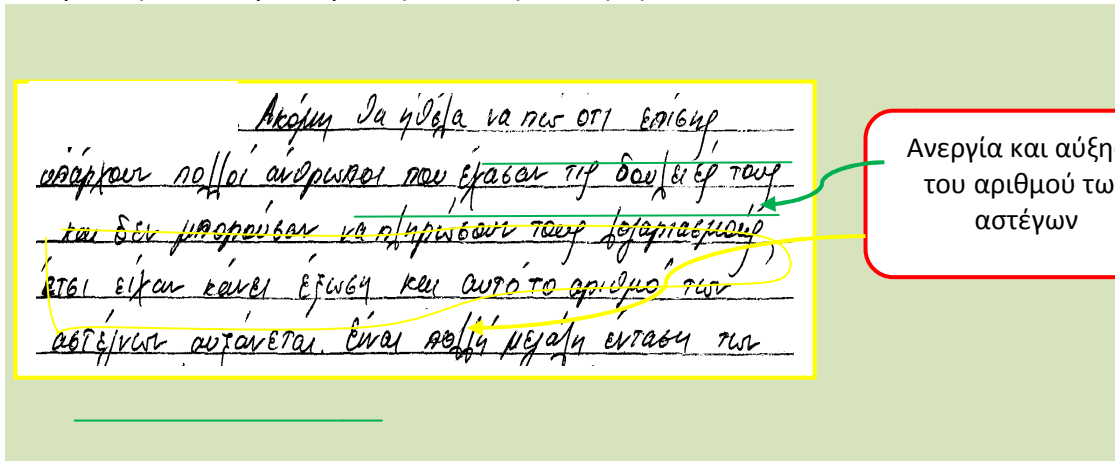 Ακόμη θα ήθελα να πω ότι επίσης
υπάρχουν πολλοί άνθρωποι που έχασαν τις δουλειές τους
και δεν μπορούσαν να πληρώσουν τους λογαριασμούς,
έτσι είχαν κάνει έξωση και αυτό το αριθμό των
αυξάνεται. Είναι πολλή μεγάλη ένταση των
Ανεργία και
του αριθμού
αστέγων